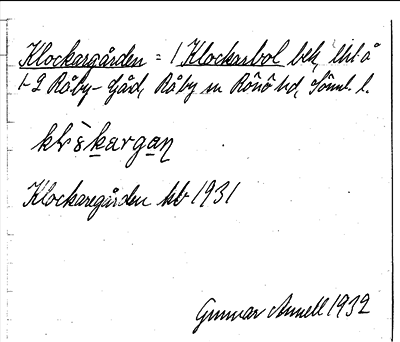 Klockargården = 1 Klockarbol bek, lht å
1-2 Råby-Gård, Råby sn Rönö hd, Söml. l.
klɔ̀kargaṇ
Klockaregården kb 1931
Gunnar Annell 1932